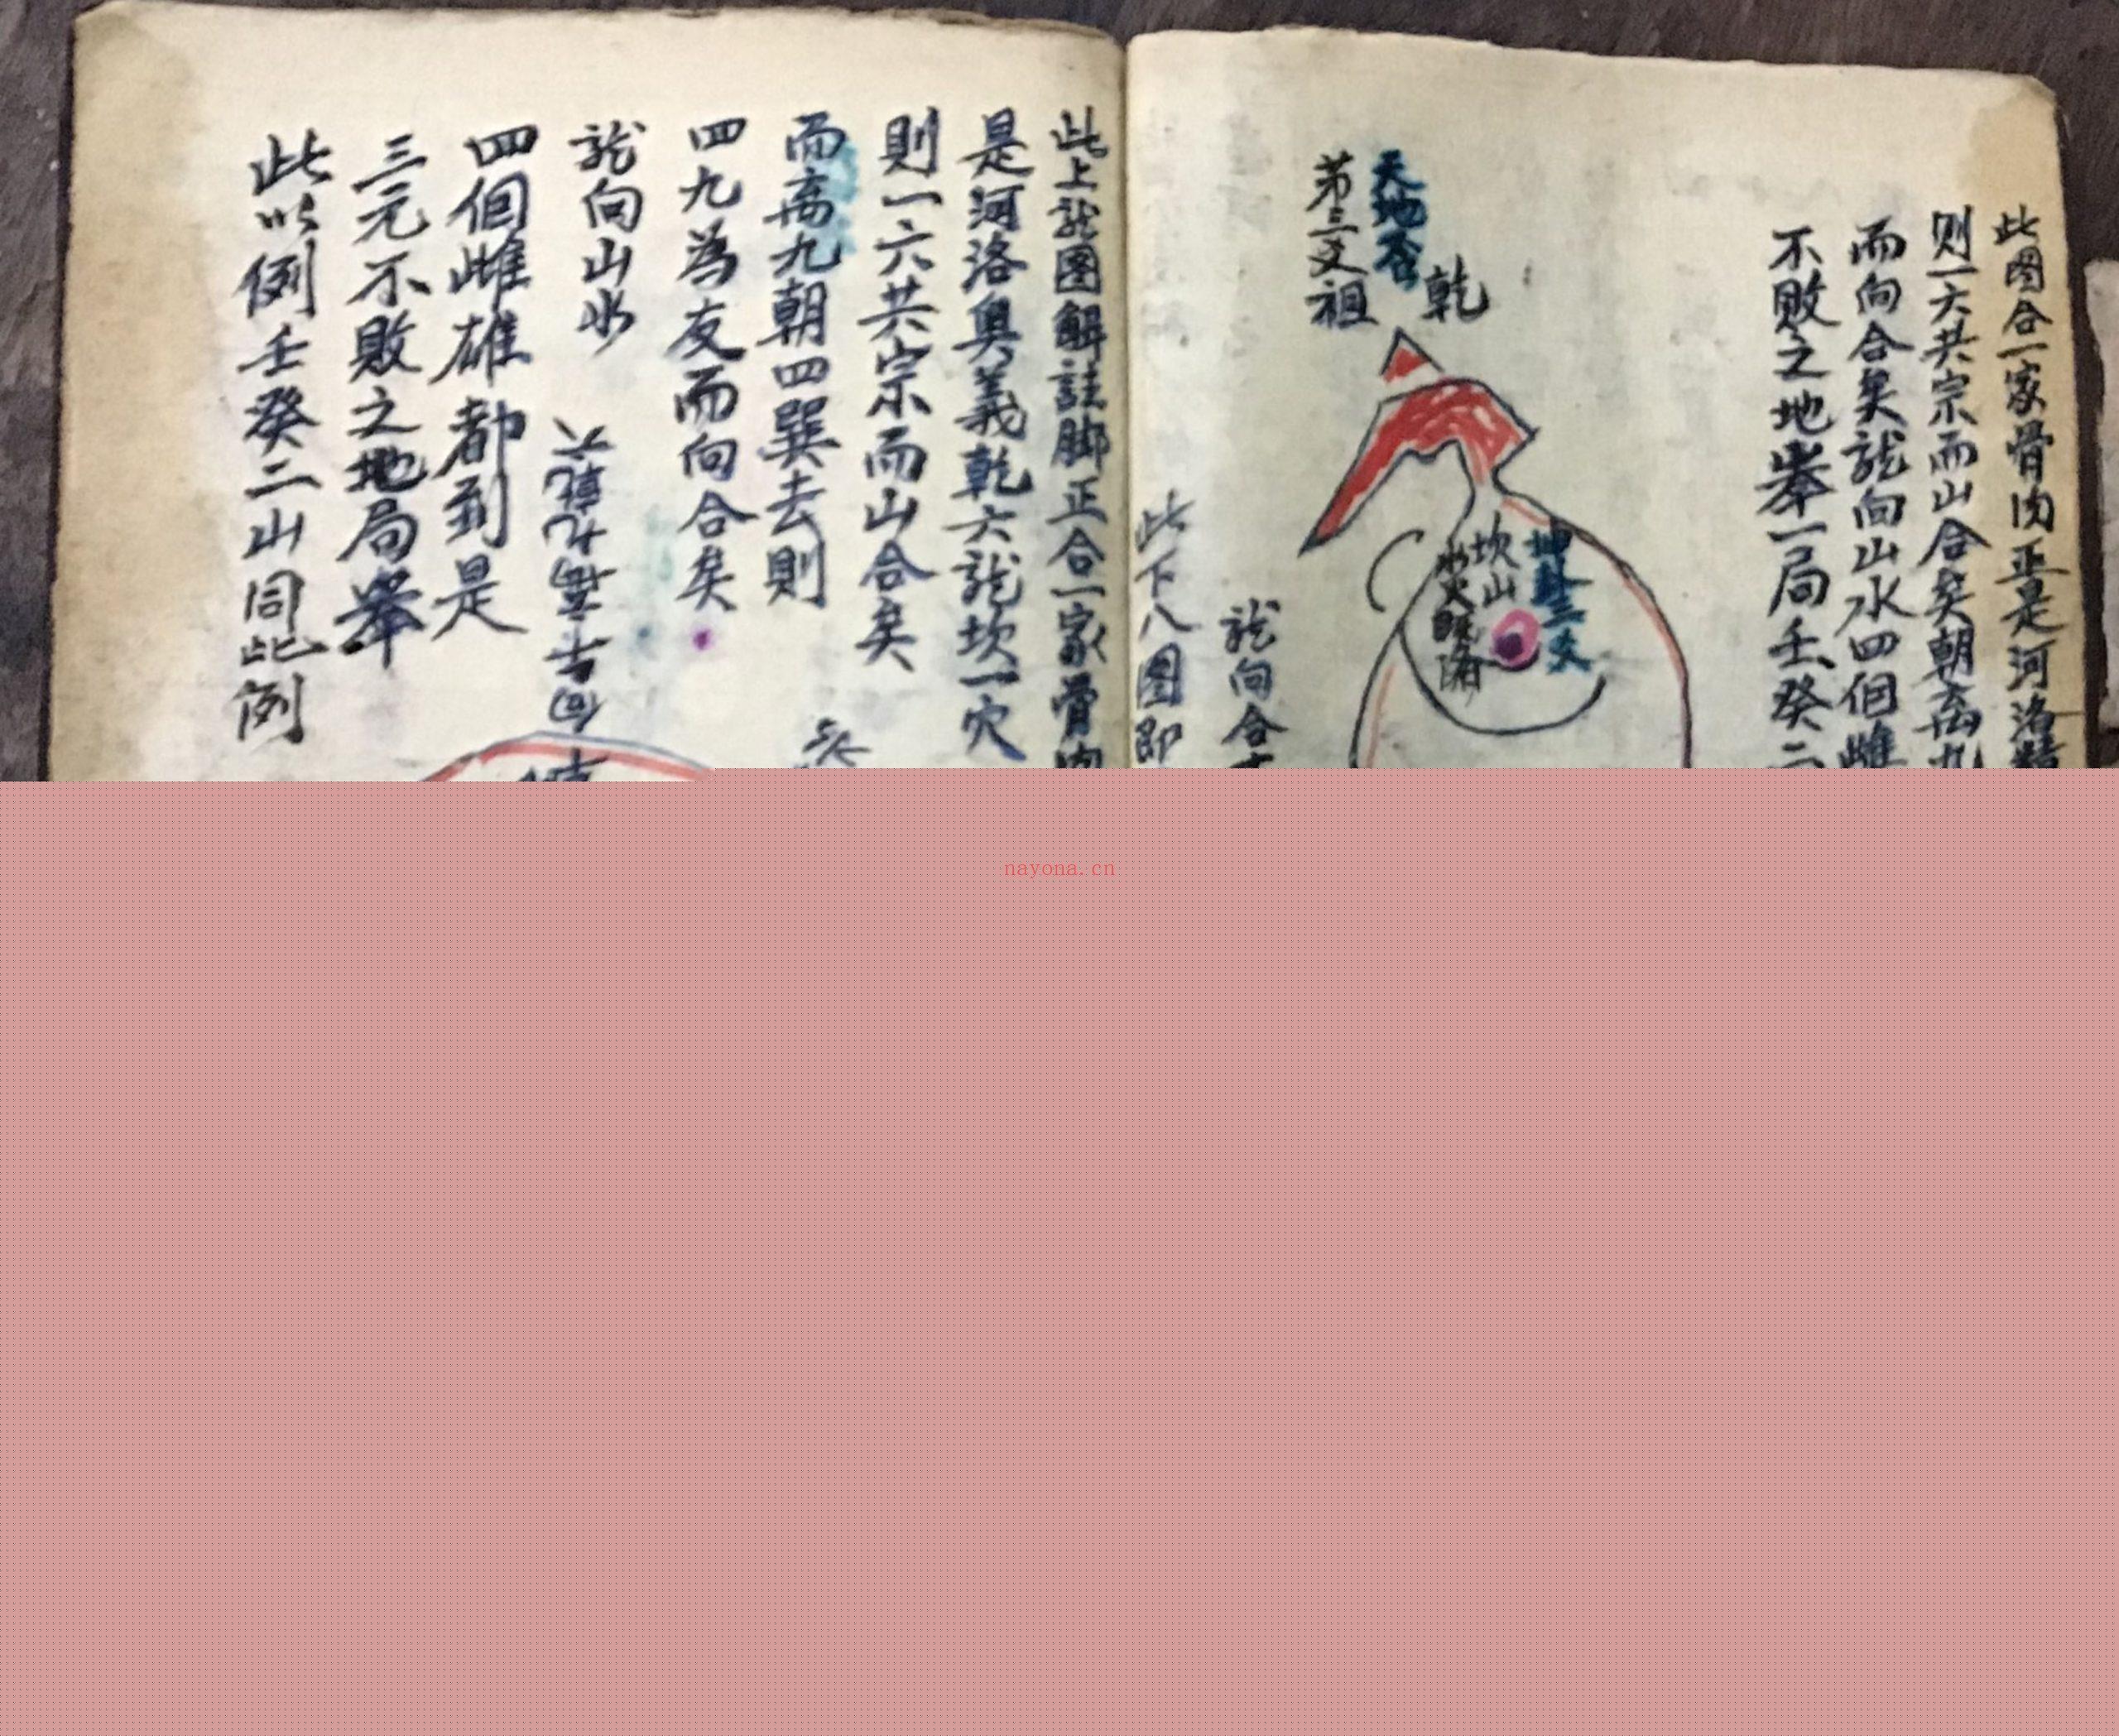 此圖合一家骨肉正是河洛
则一六共宗而山合矣朝离九
而向合矣龍向山水四個雌
不败之地举一局壬癸二
天地否
第三爻祖
乾
坎山
水火既济
龍向合十
此下八圖即
此上龍圖解註脚正合一家骨肉
是河洛奥義乾六龍坎一穴
則一六共宗而山合矣
而离九朝四巽去則
四九為友而向合矣
龍向山水
四個雌雄都到是
三元不敗之地局举
此以例壬癸二山同此例
nayona.cn